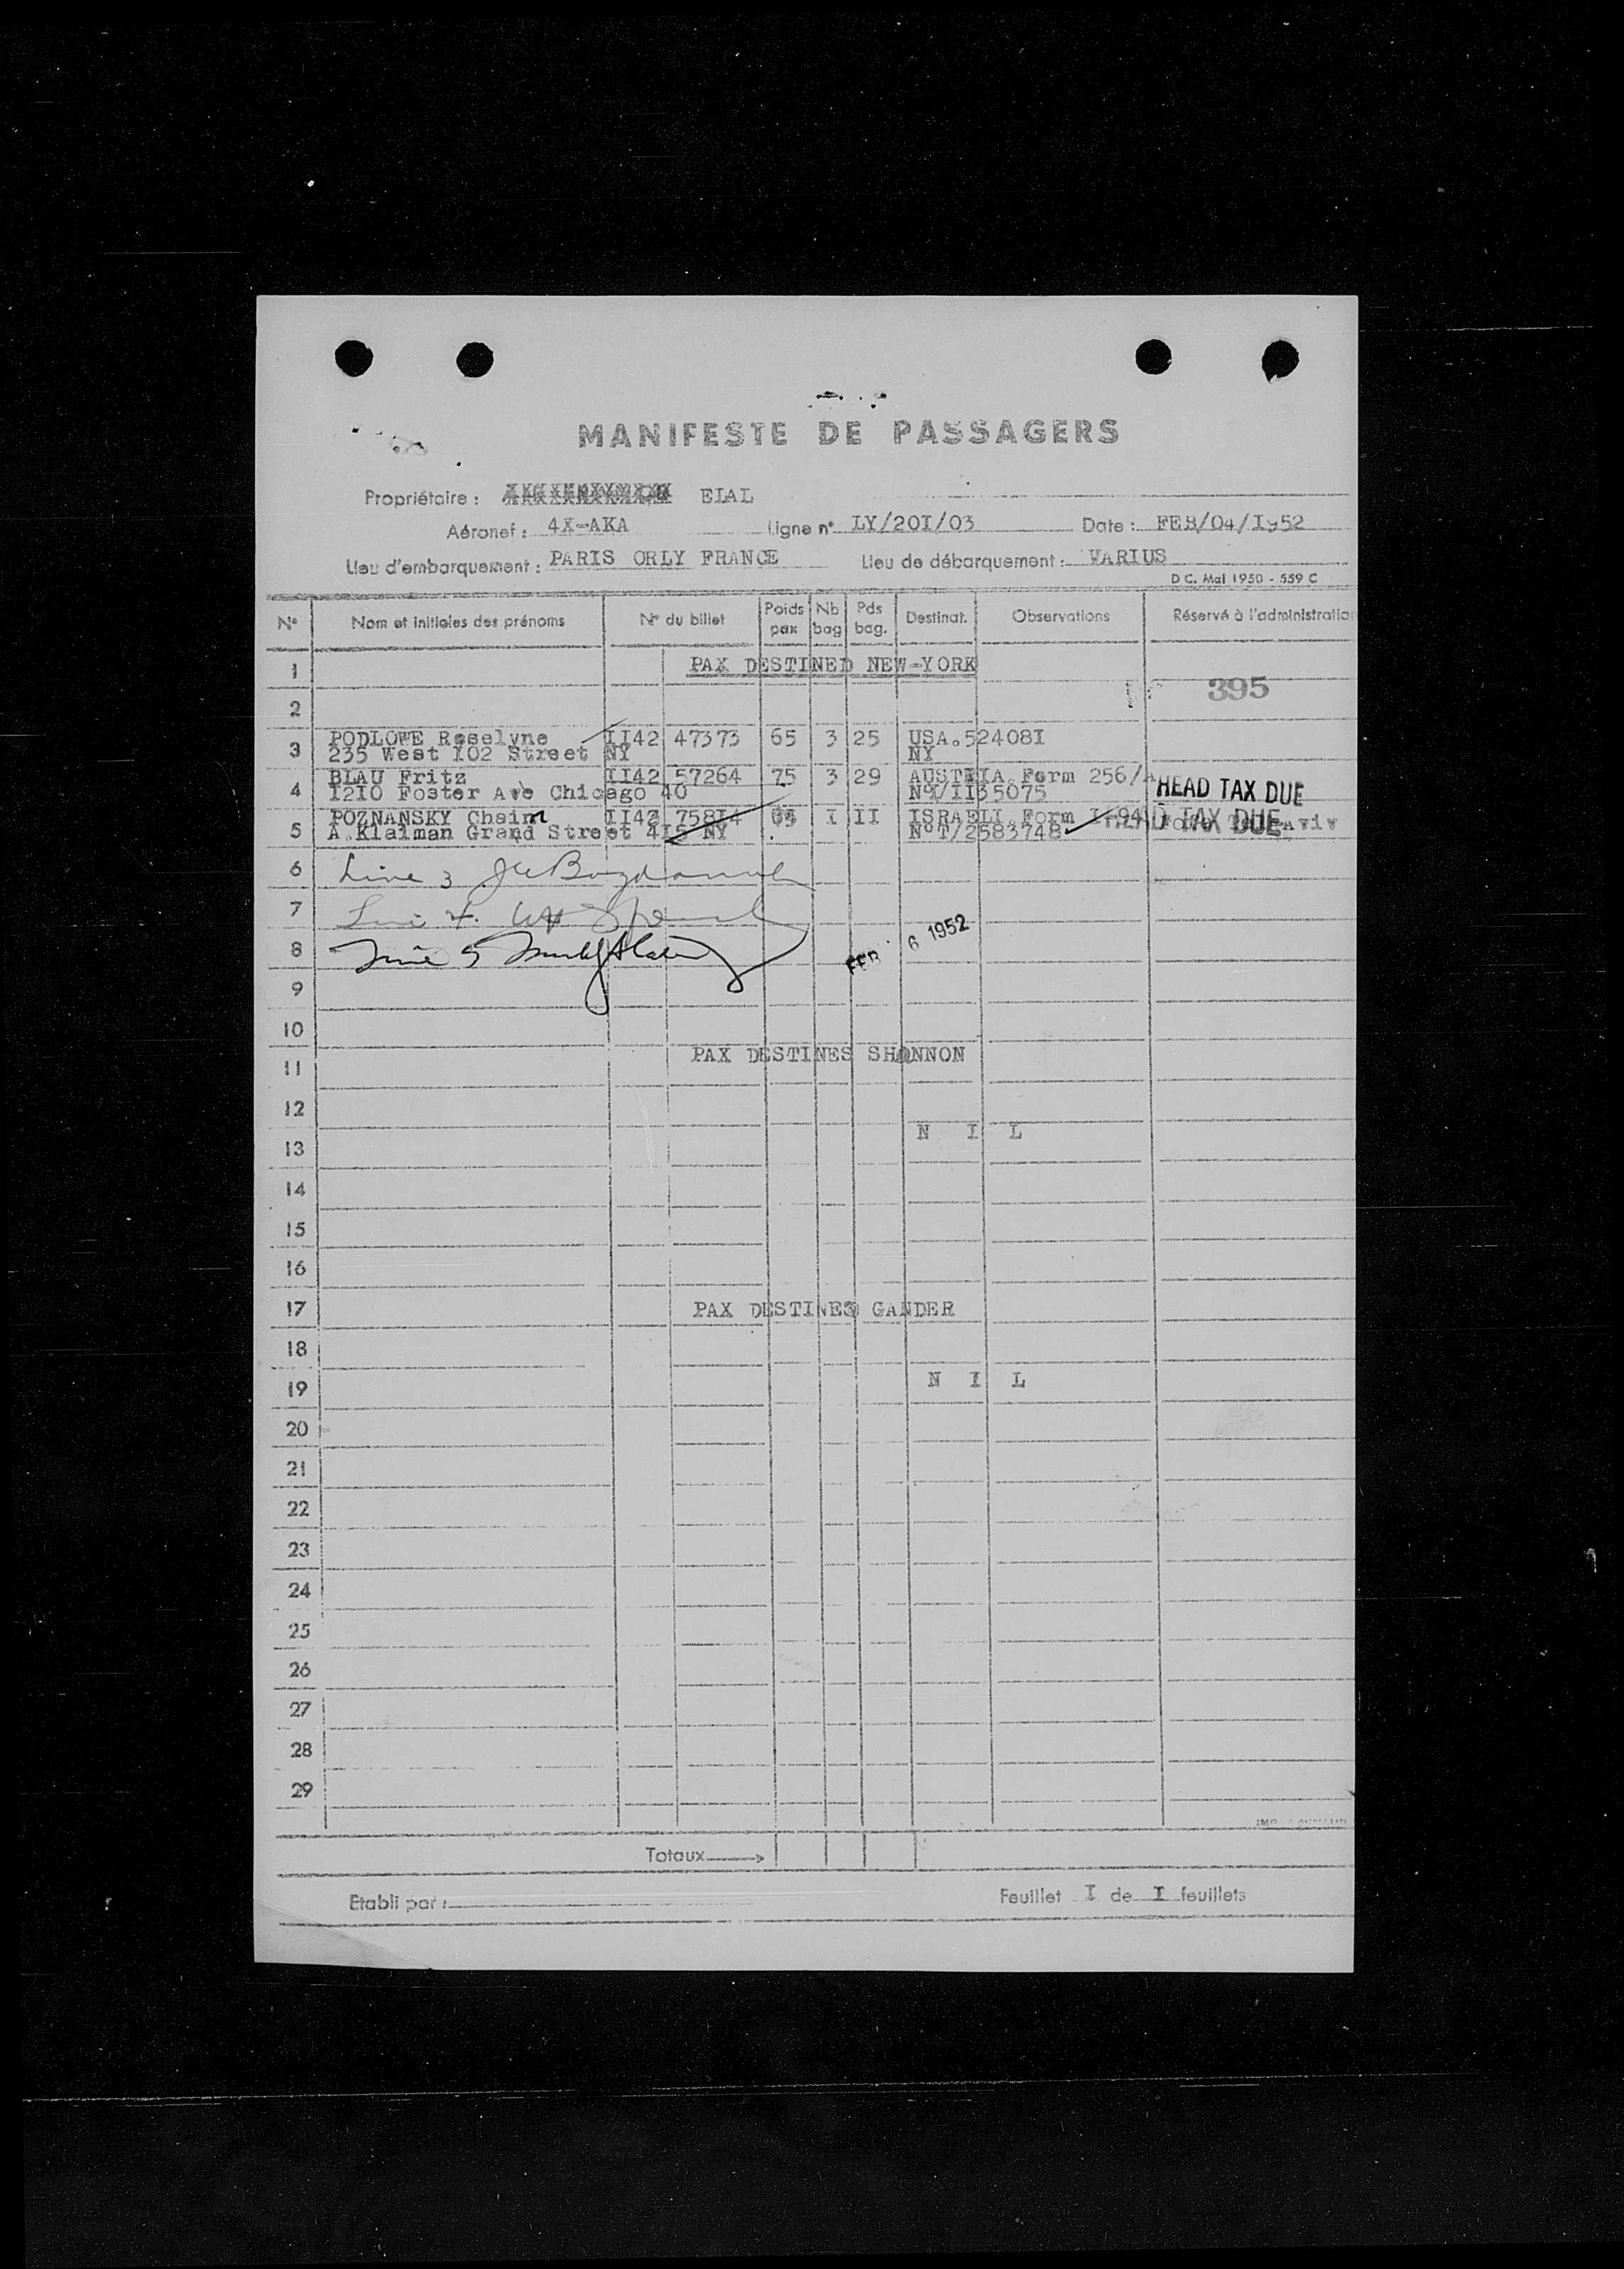 MANIFESTE DE PASSAGERS
Propriétaire : ELAL
Aéronef : 4X-AKA Ligne n° LY/20I/03 Date : FEB/04/I952
Lieu d'embarquement : PARIS ORLY FRANCE Lieu de débarquement : VARIUS
D C. Mai 1950 - 559 C
N° Nom et initiales des prénoms N° du billet Poids pax Nb bag Pds bag. Destinat. Observations Réservé à l'administration
1 PAX DESTINED NEW-YORK
395
2
3 PODLOWE Roselyne II42 47373 65 3 25 USA.52408I
235 West I02 Street NY NY
4 BLAU Fritz II42 57264 75 3 29 AUSTRIA Form 256/A
I2I0 Foster Ave Chicago 40 N°I/II35075 HEAD TAX DUE
5 POZNANSKY Chaim II42 75814 65 I II ISRAELI Form I-94 HEAD TAX DUE
A.Klaiman Grand Street 4I5 NY N°T/2583748
6 Line 3
7 Line 4.
8 Line 5
FEB 6 1952
9
10
11 PAX DESTINES SHANNON
12
13 N I L
14
15
16
17 PAX DESTINES GANDER
18
19 N I L
20
21
22
23
24
25
26
27
28
29
Totaux
Etabli par : Feuillet I de I feuillets